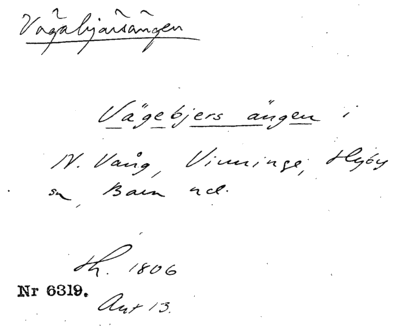 Vägabjärsängen
Vägebjers ängen i
N. Vång, Vinninge, Hyby
sn, Bara hd.
Sk. 1806
Nr 6319.
Akt 13.